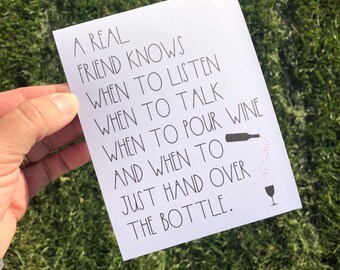 A REAL
FRIEND KNOWS
WHEN TO LISTEN
WHEN TO TALK
WHEN TO POUR WINE
AND WHEN TO
JUST HAND OVER
THE BOTTLE.